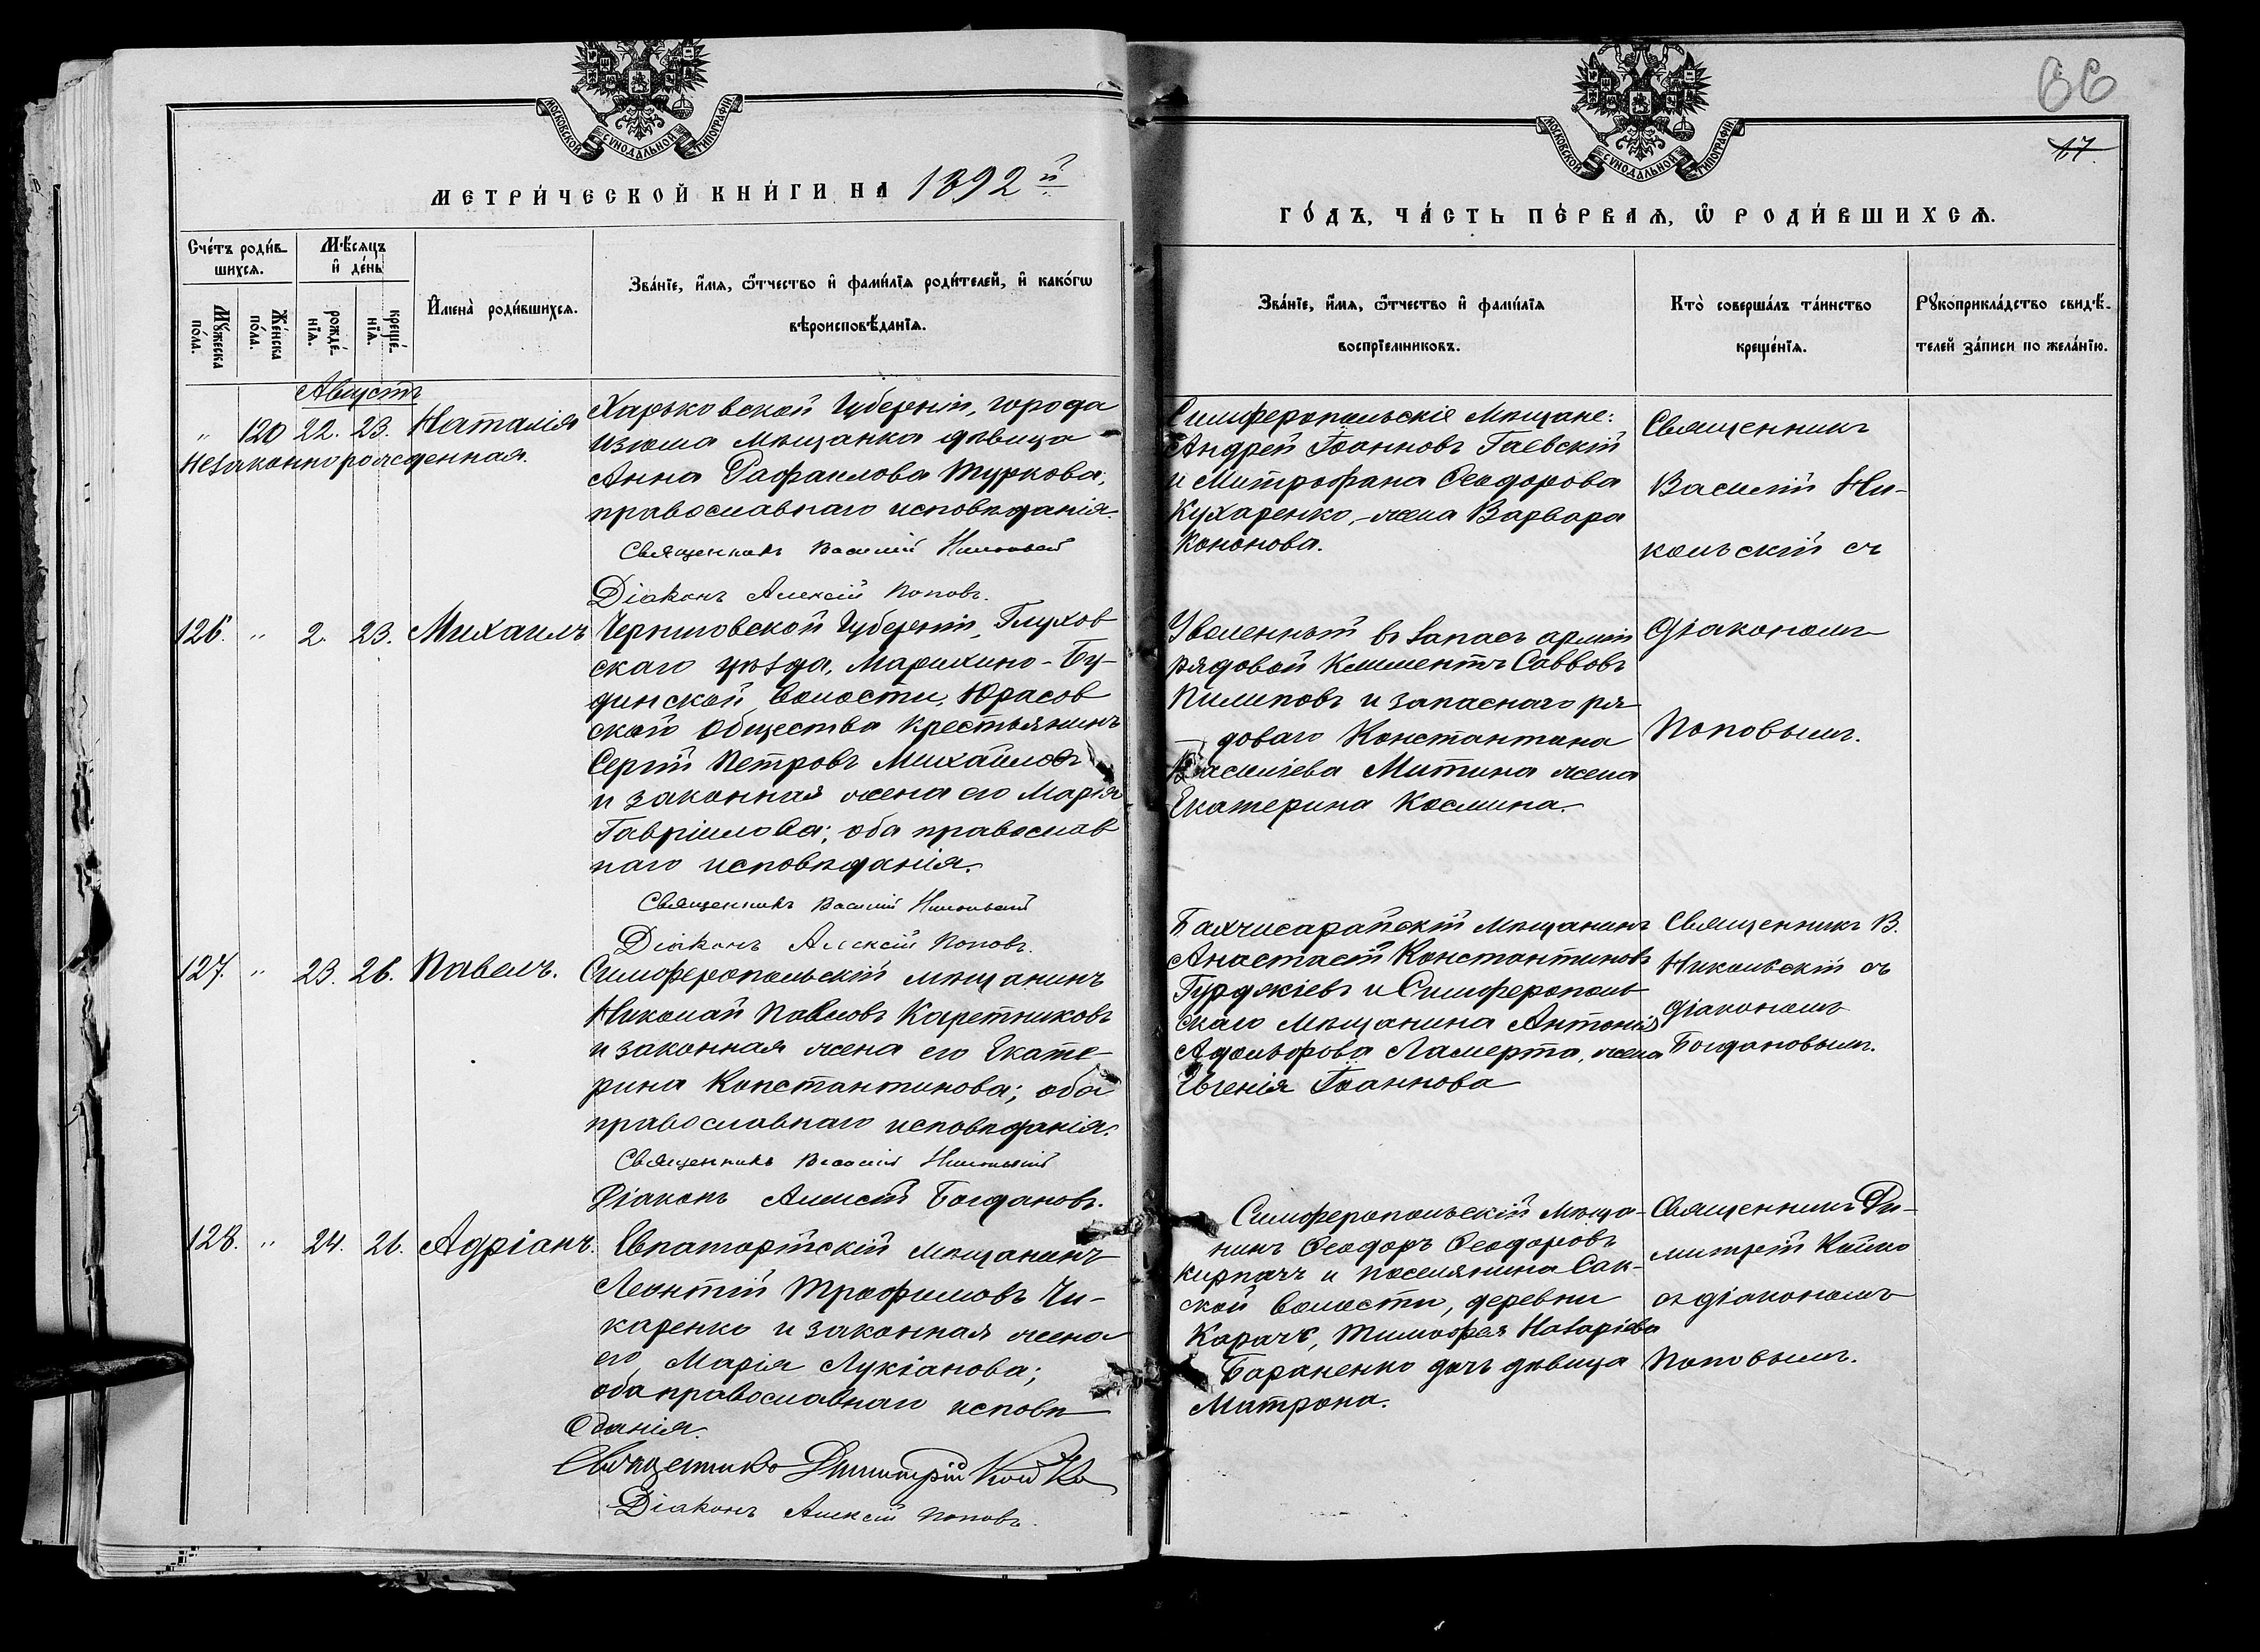 МОСКОВСКОЙ СѴНОДАЛЬНОЙ ТИПОГРАФІИ
МЕТРИ́ЧЕСКОЙ КНИ́ГИ НА 1892й
Сче́тъ роди́в-
шихсѧ.
Мꙋ́жеска
по́ла.
Же́нска
по́ла.
Мѣ́сѧцъ
и҆ де́нь
рожде́-
нїѧ.
креще́-
нїѧ.
И҆мена̀ роди́вшихсѧ.
Зва́нїе, и҆́мѧ, ѻ҆́тчество и҆ фами́лїѧ роди́телей, и҆ како́гѡ
вѣроисповѣ́данїѧ.
Августъ
" 120 22. 23. Наталія
Незаконнорожденная.
Харьковской Губерніи, города
Изюма Мѣщанка дѣвица
Анна Рафаилова Туркова,
православнаго исповѣданія.
Священникъ Василій Никольскій
Діаконъ Алексій Поповъ.
126. " 2. 23. Михаилъ
Черниговской Губерніи, Глухов
скаго уѣзда, Марихино-Бу-
динской волости, Юрасов
ской Общества Крестьянинъ
Сергій Петровъ Михайловъ
и законная жена его Марія
Гавріилова; оба православ
наго исповѣданія.
Священникъ Василій Никольскій
Діаконъ Алексій Поповъ.
127. " 23. 26. Павелъ.
Симферопольскій мѣщанинъ
Николай Павловъ Каретниковъ
и законная жена его Екате-
рина Константинова; оба
православнаго исповѣданія.
Священникъ Василій Никольскій
Діаконъ Алексій Богдановъ.
128. " 24. 26. Адріанъ.
Евпаторійскій мѣщанинъ
Леонтій Трофимовъ Чи-
каренко и законная жена
его Марія Лукіанова;
оба православнаго исповѣ
данія.
Священникъ Димитрій Койко
Діаконъ Алексій Поповъ.
66
17.
МОСКОВСКОЙ СѴНОДАЛЬНОЙ ТИПОГРАФІИ
ГО́ДЪ, ЧА́СТЬ ПЕ́РВАѦ, Ѽ РОДИ́ВШИХСѦ.
Зва́нїе, и҆́мѧ, ѻ҆́тчество и҆ фами́лїѧ
воспрїемниковъ.
Кто̀ соверша́лъ та́инство
креще́нїѧ.
Рꙋкоприкла́дство свидѣ́-
телей за́писи по жела́нїю.
Симферопольскіе Мѣщане:
Андрей Іоанновъ Гаевскій
и Митрофана Ѳеодорова
Кухаренко,-жена Варвара
Кононова.
Священникъ
Василій Ни-
кольскій съ
діакономъ
Поповымъ.
Уволенный въ запасъ арміи
рядовой Климентъ Саввовъ
Пилиповъ и запаснаго ря-
доваго Константина
Василіева Митина жена
Екатерина Космина.
Бахчисарайскій Мѣщанинъ
Анастасій Константиновъ
Гурджіевъ и Симферополь
скаго Мѣщанина Антонія
Адольфова Ламерта, жена
Евгенія Іоаннова
Священникъ В.
Никольскій съ
діакономъ
Богдановымъ.
Симферопольскій Мѣща-
нинъ Ѳеодоръ Ѳеодоровъ
Кирпачъ и поселянина Сак-
ской волости, деревни
Карачъ, Тимофея Назаріева
Бараненко дочь дѣвица
Матрона.
Священникъ Ди-
митрій Койко
съ діакономъ
Поповымъ.